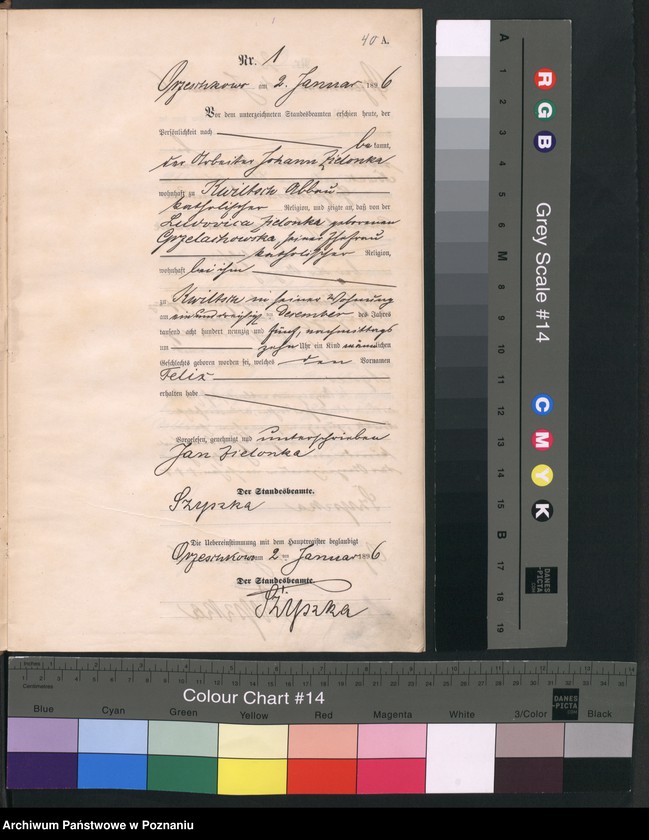 40 A.
Nr. 1
Orzeschkowo am 2. Januar 1896
Vor dem unterzeichneten Standesbeamten erschien heute, der
Persönlichkeit nach
bekannt,
der Arbeiter Johann Zielonka
wohnhaft zu Kwiltsch Abbau
katholischer Religion, und zeigte an, daß von der
Ludovica Zielonka geborenen
Grzelachowska seiner Ehefrau
katholischer Religion,
wohnhaft bei ihm
zu Kwiltsch in seiner Wohnung
am einunddreißigsten Dezember des Jahres
tausend acht hundert neunzig und fünf, nachmittags
um zehn Uhr ein Kind männlichen
Geschlechts geboren worden sei, welches den Vornamen
Felix
erhalten habe
Vorgelesen, genehmigt und unterschrieben
Jan Zielonka
Der Standesbeamte.
Szyszka
Die Uebereinstimmung mit dem Hauptregister beglaubigt
Orzeschkowo am 2 ten Januar 1896
Der Standesbeamte.
Szyszka
A 1 2 3 4 5 6 M 8 9 10 11 12 13 14 15 B 17 18 19
R G B
Grey Scale #14
C M Y K
DANES-PICTA
.COM
Inches 1 2 3 4 5 6 7 8 9 10 11 12 13 14
Centimetres
Colour Chart #14
DANES-PICTA
.COM
Blue Cyan Green Yellow Red Magenta White 3/Color Black
Archiwum Państwowe w Poznaniu